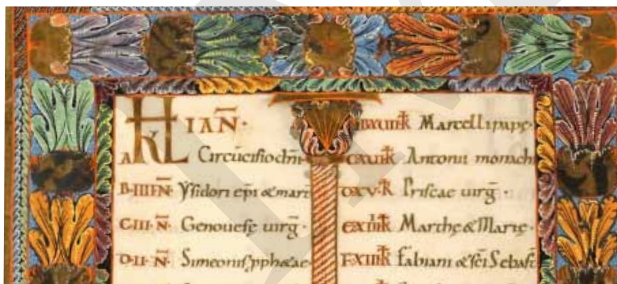 KL IAN̄·
A Circūcisio dn̄i
B·IIII·N̄· Ysidori ep̄i & mart
C·III·N̄· Genouefe uirḡ·
D·II·N̄· Simeonis pphetae
XVII·k̄ Marcelli pape·
C·XVI·k̄ Antonii monachi
D·XV·k̄ Priscae uirḡ·
E·XIIII·k̄ Marthe & Marie·
F·XIII·k̄ Fabiani & sc̄i Sebast